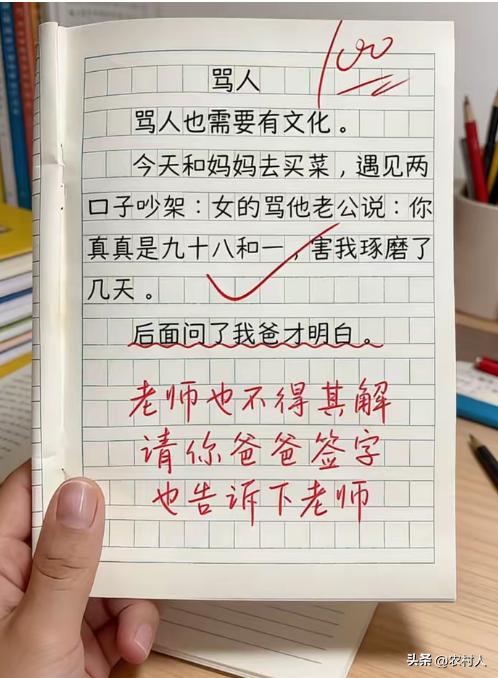 100
骂人
骂人也需要有文化。
今天和妈妈去买菜，遇见两
口子吵架：女的骂他老公说：你
真真是九十八和一，害我琢磨了
几天。
后面问了我爸才明白。
老师也不得其解
请你爸爸签字
也告诉下老师
头条 @农村人